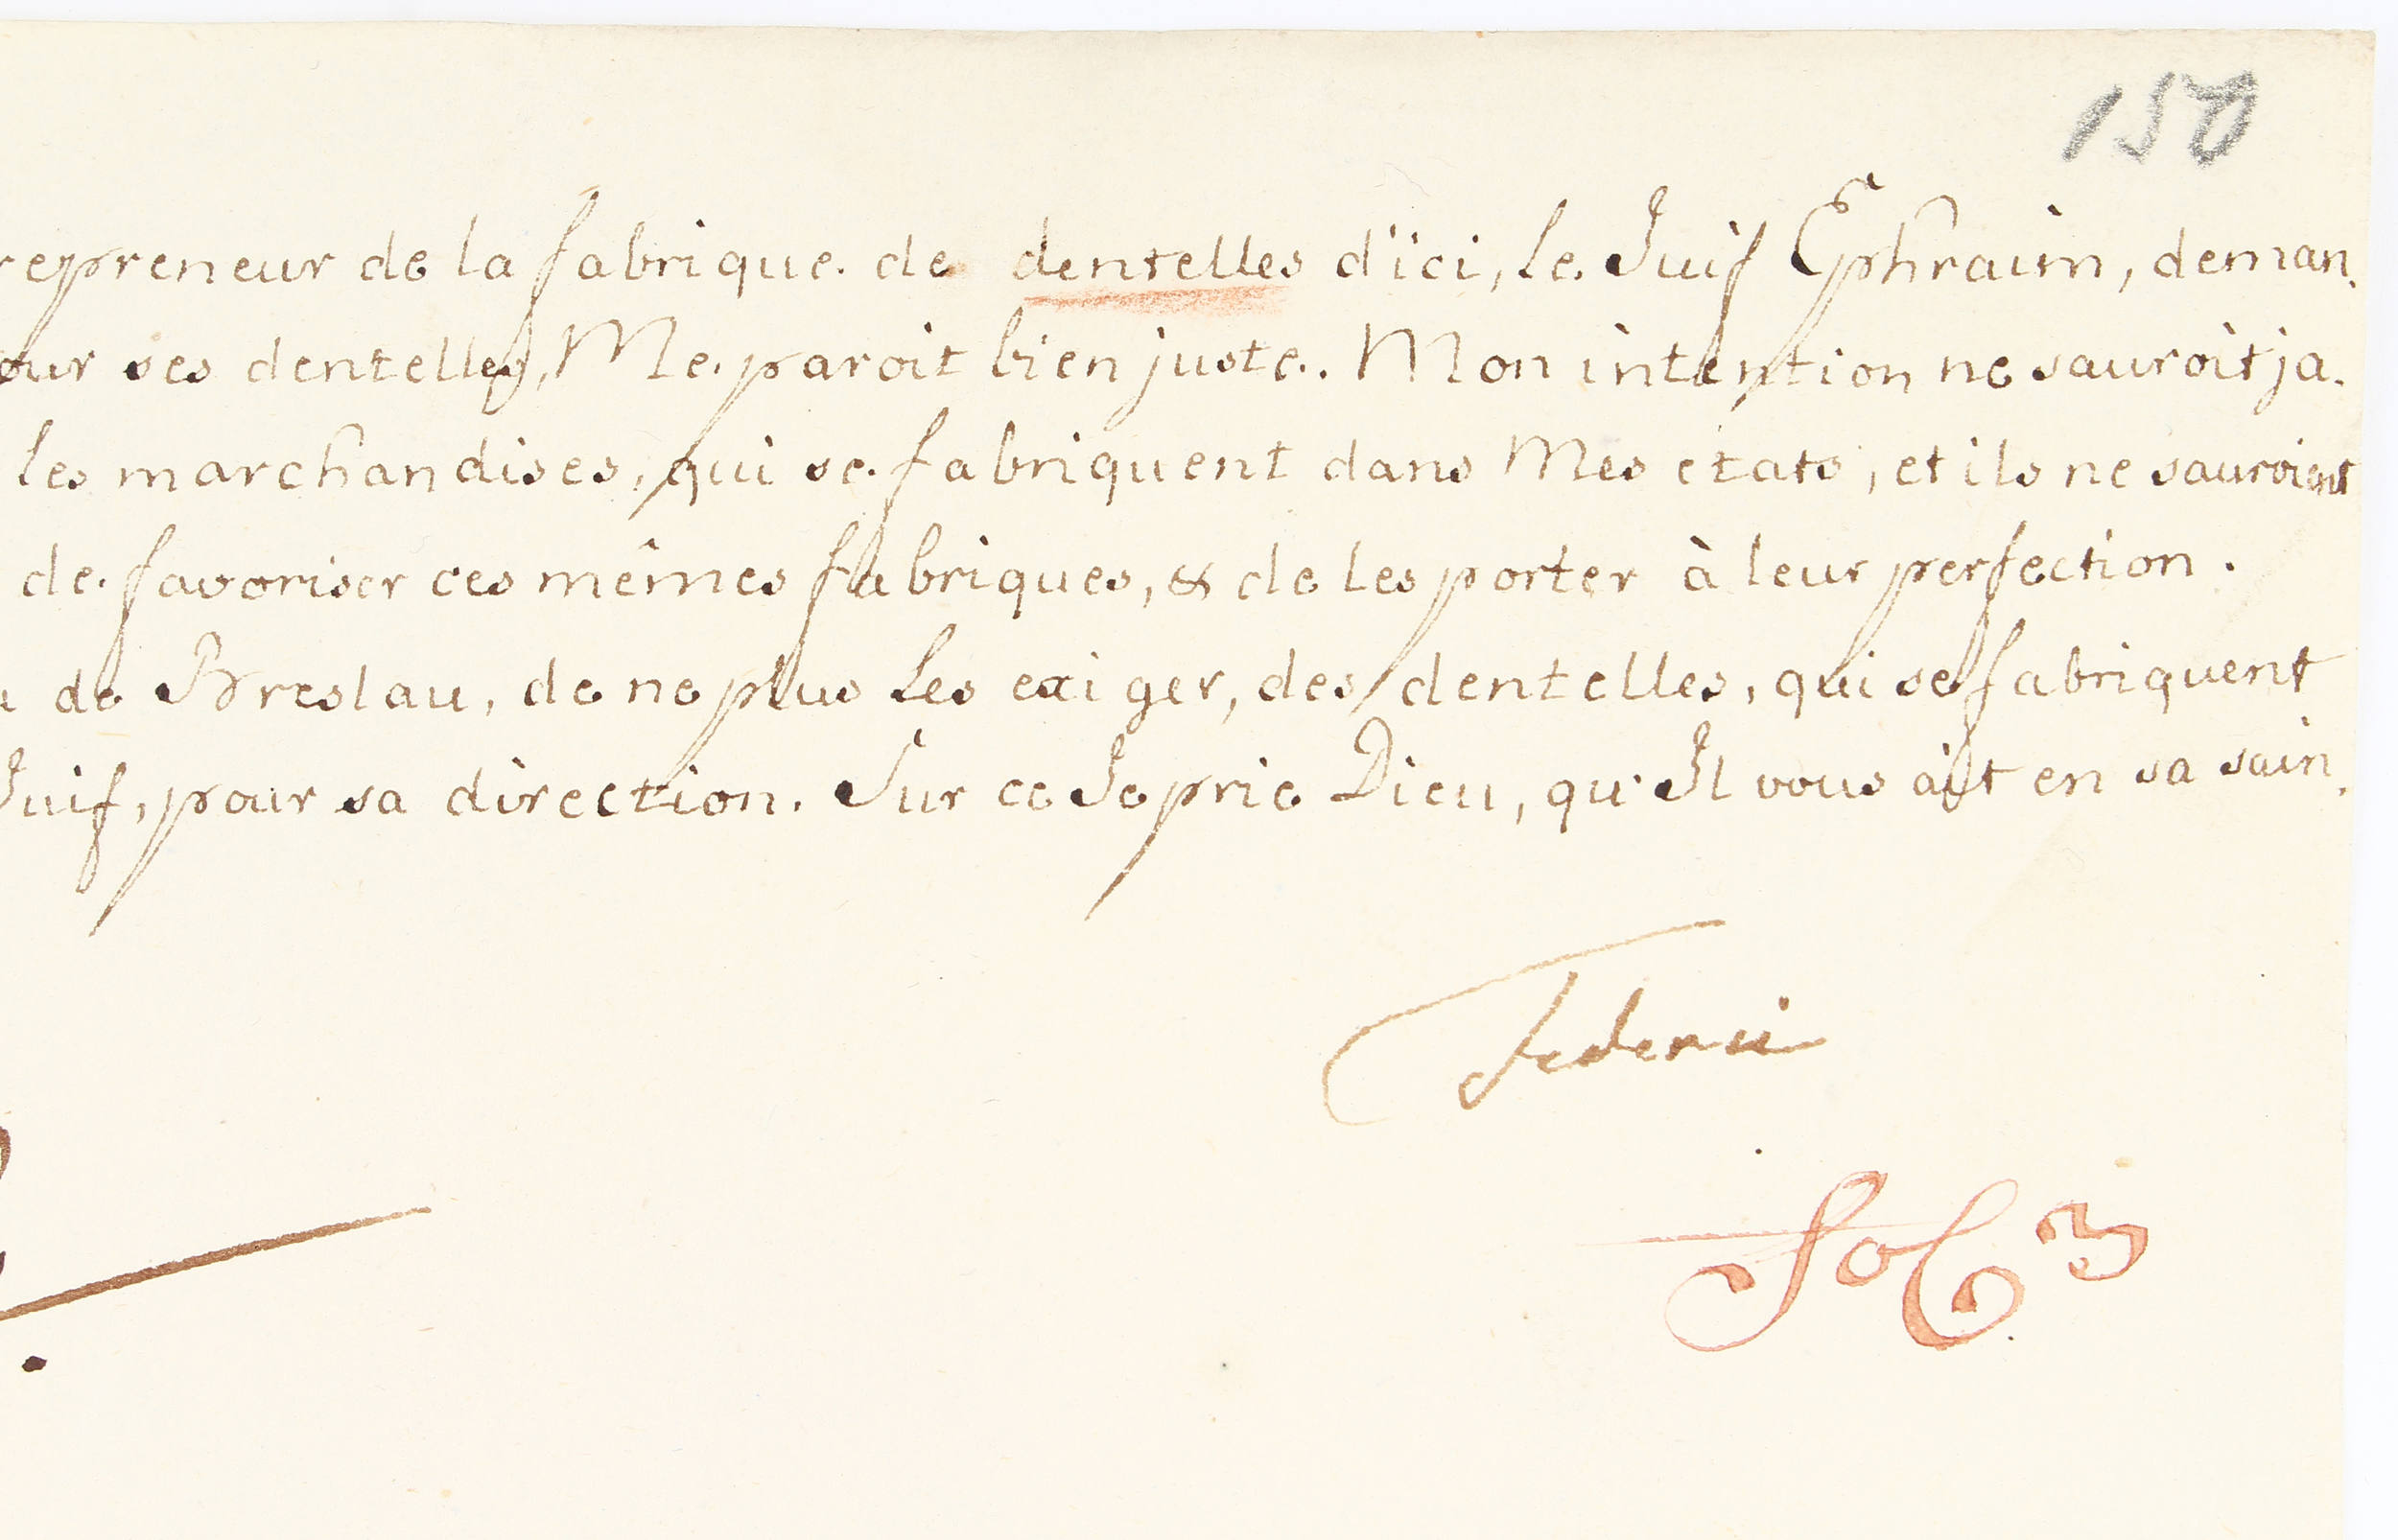 150
repreneur de la fabrique de dentelles d'ici, le Juif Ephraim, deman.
our ses dentelles, Me paroit bien juste. Mon intention ne sauroit ja.
les marchandises, qui se fabriquent dans Mes etats, et ils ne sauroient
de favoriser ces mêmes fabriques, & de les porter à leur perfection.
de Breslau, de ne plus les exiger, des dentelles, qui se fabriquent
Juif, pour sa direction. Sur ce Je prie Dieu, qu'Il vous ait en sa sain.
Federic